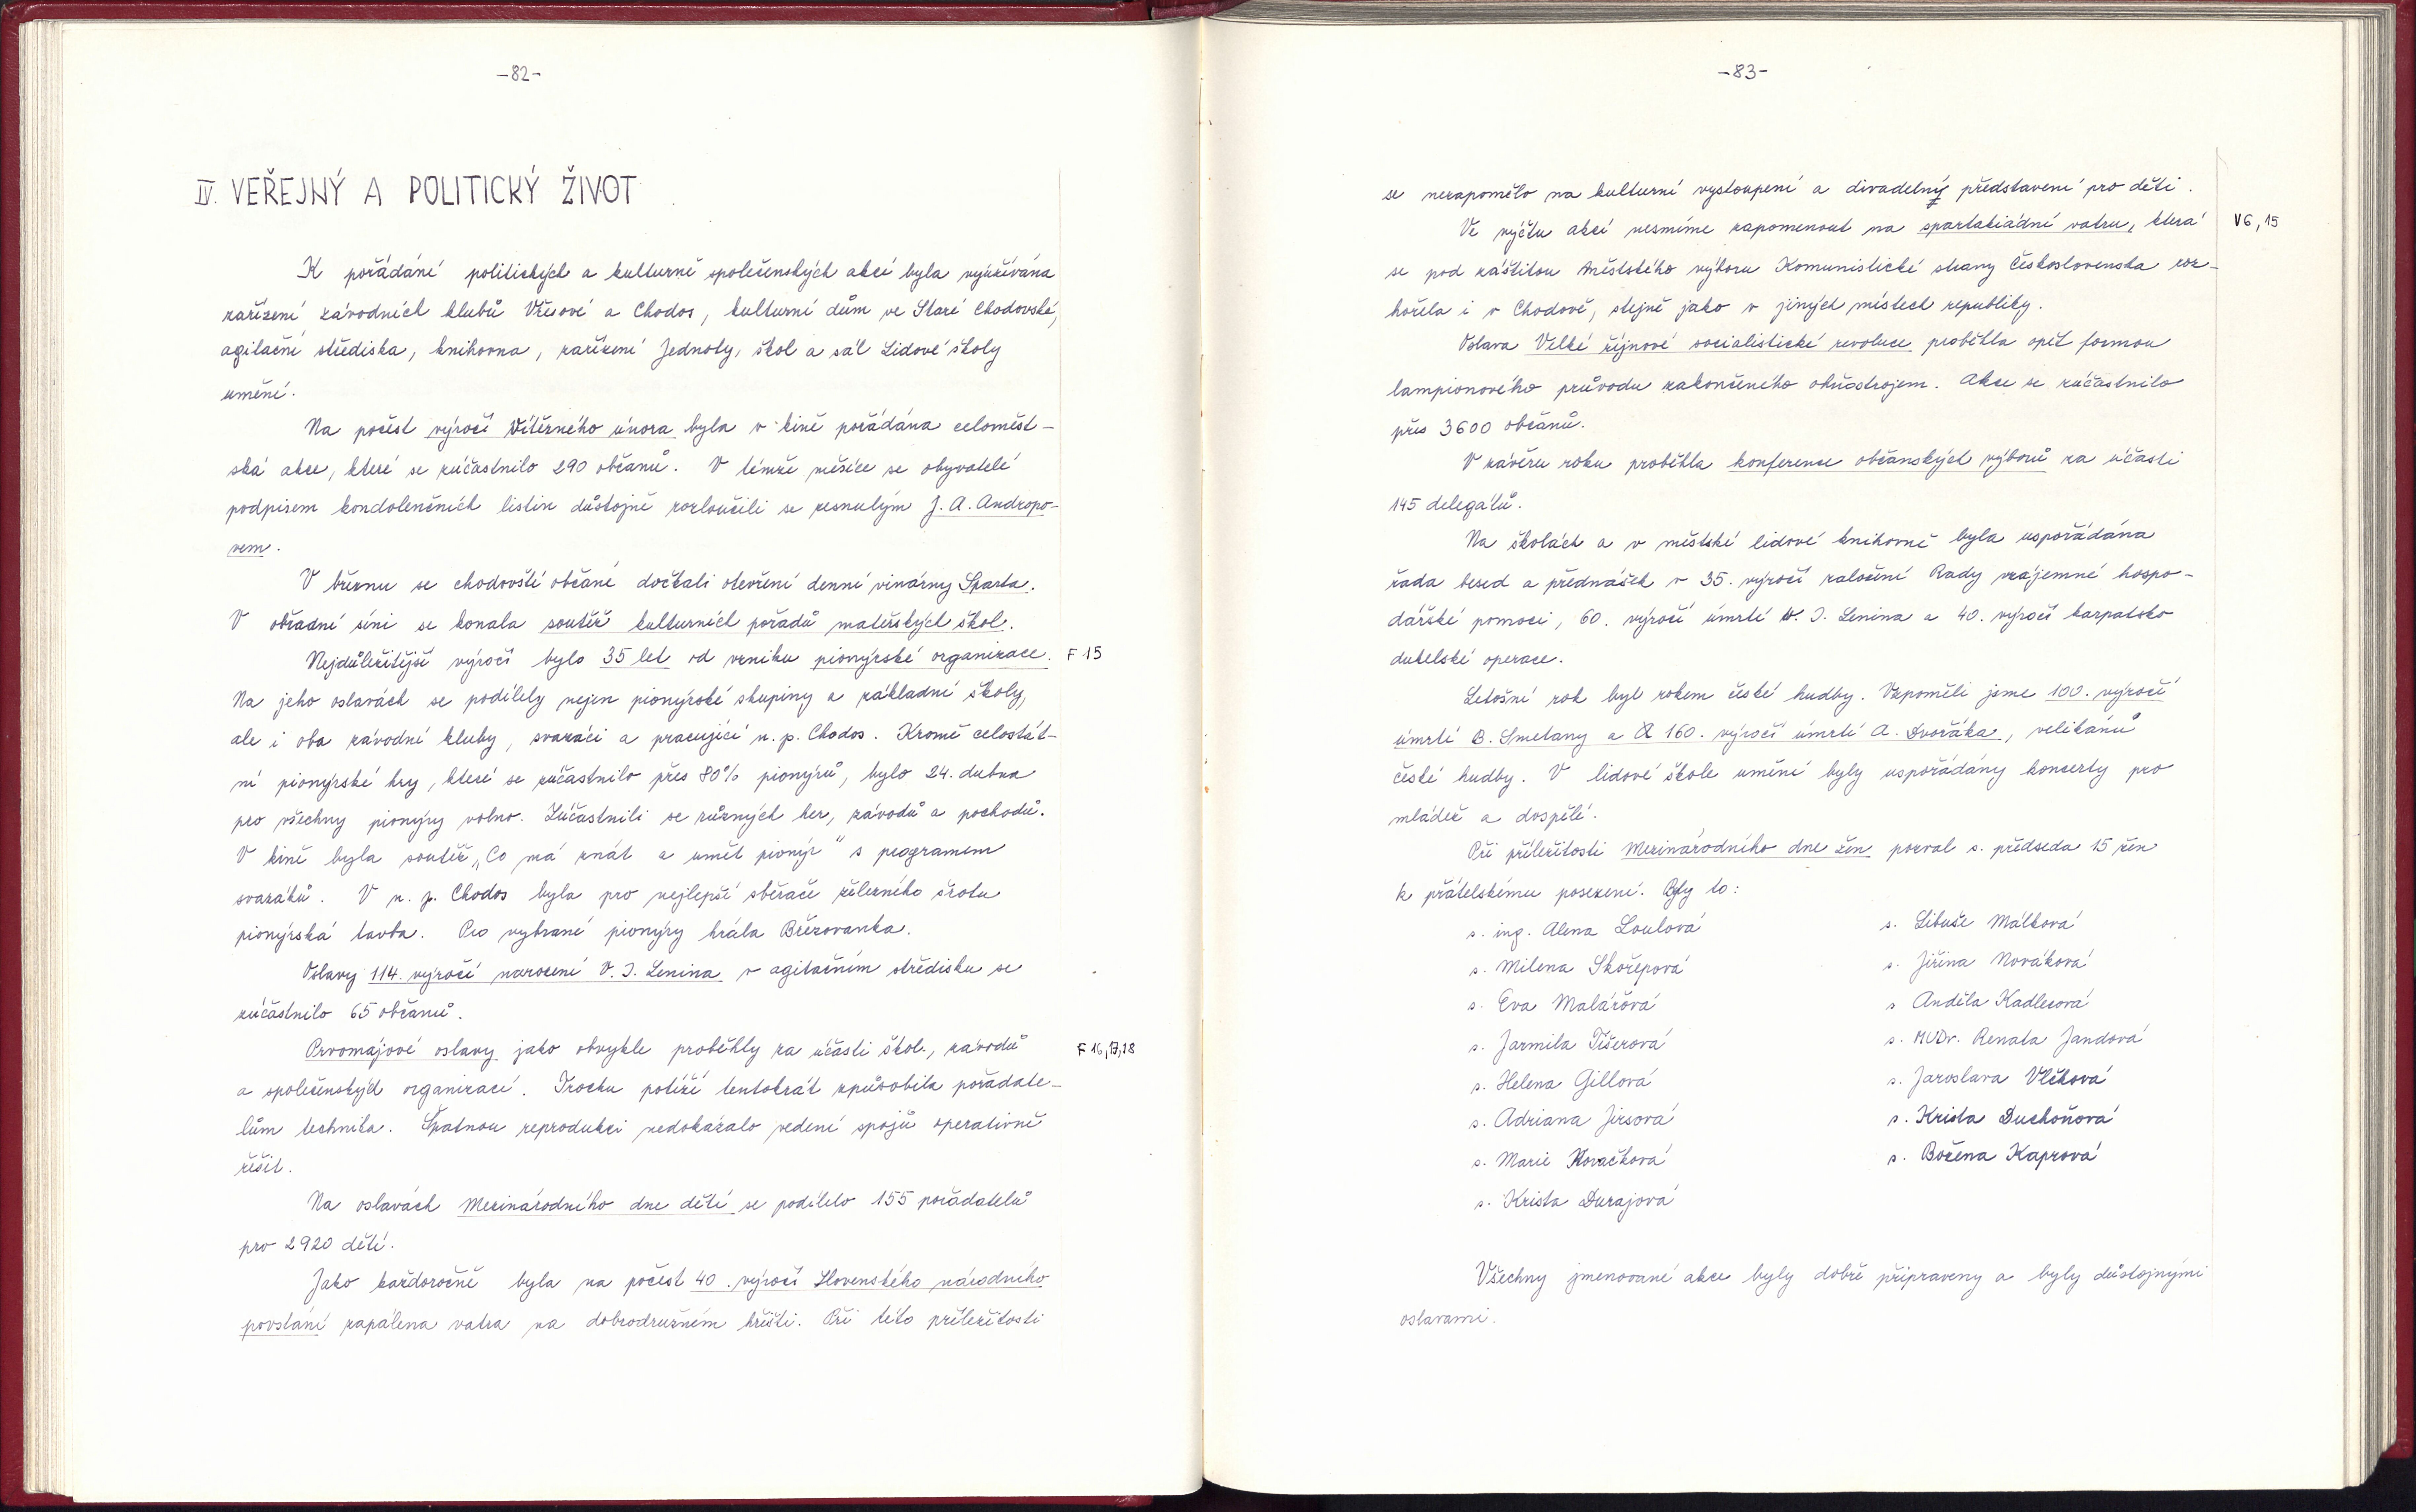 -82-
IV. VEŘEJNÝ A POLITICKÝ ŽIVOT
K pořádání politických a kulturně společenských akcí byla využívána
zařízení závodních klubů Vřesové a Chodos, kulturní dům ve Staré Chodovské,
agitační střediska, knihovna, zařízení Jednoty, škol a sál Lidové školy
umění.
Na počest výročí Vítězného února byla v kině pořádána celoměst-
ská akce, které se zúčastnilo 290 občanů. V témže měsíce se obyvatelé
podpisem kondolenčních listin důstojně rozloučili se zesnulým J. A. Andropo-
vem.
V březnu se chodovští občané dočkali otevření denní vinárny Sparta.
V obřadní síni se konala soutěž kulturních pořadů mateřských škol.
Nejdůležitější výročí bylo 35 let od vzniku pionýrské organizace. F 15
Na jeho oslavách se podílely nejen pionýrské skupiny a základní školy,
ale i oba závodní kluby, svazáci a pracující n. p. Chodos. Kromě celostát-
ní pionýrské hry, které se zúčastnilo přes 80% pionýrů, bylo 24. dubna
pro všechny pionýry volno. Zúčastnili se různých her, závodů a pochodů.
V kině byla soutěž „Co má znát a umět pionýr" s programem
svazáků. V n. p. Chodos byla pro nejlepší sběrače železného šrotu
pionýrská tavba. Pro vybrané pionýry hrála Březovanka.
Oslavy 114. výročí narození V. I. Lenina v agitačním středisku se
zúčastnilo 65 občanů.
Prvomájové oslavy jako obvykle proběhly za účasti škol, závodů F 16,17,18
a společenských organizací. Trochu potíží tentokrát způsobila pořadate-
lům technika. Špatnou reprodukci nedokázalo vedení spojů operativně
řešit.
Na oslavách Mezinárodního dne dětí se podílelo 155 pořadatelů
pro 2920 dětí.
Jako každoročně byla na počest 40. výročí Slovenského národního
povstání zapálena vatra na dobrodružném hřišti. Při této příležitosti
-83-
se nezapomělo na kulturní vystoupení a divadelný představení pro děti.
Ve výčtu akcí nesmíme zapomenout na spartakiádní vatru, která V6, 15
se pod záštitou Městského výboru Komunistické strany Československa roz-
hořela i v Chodově, stejně jako v jiných místech republiky.
Oslava Velké říjnové socialistické revoluce proběhla opět formou
lampionového průvodu zakončeného ohňostrojem. Akce se zúčastnilo
přes 3600 občanů.
V závěru roku proběhla konference občanských výborů za účasti
145 delegátů.
Na školách a v městské lidové knihovně byla uspořádána
řada besed a přednášek v 35. výročí založení Rady vzájemné hospo-
dářské pomoci, 60. výročí úmrtí V. I. Lenina a 40. výročí karpatsko
dukelské operace.
Letošní rok byl rokem české hudby. Vzpoměli jsme 100. výročí
úmrtí B. Smetany a 160. výročí úmrtí A. Dvořáka, velikánů
české hudby. V lidové škole umění byly uspořádány koncerty pro
mládež a dospělé.
Při příležitosti Mezinárodního dne žen pozval s. předseda 15 žen
k přátelskému posezení. Byly to:
s. ing. Alena Loulová s. Libuše Málková
s. Milena Skořepová s. Jiřina Nováková
s. Eva Malářová s Anděla Kadlecová
s. Jarmila Tišerová s. MUDr. Renata Jandová
s. Helena Gillová s. Jaroslava Vlčková
s. Adriana Jirsová s. Krista Duchoňová
s. Marie Kovačková s. Božena Kaprová
s. Krista Durajová
Všechny jmenované akce byly dobře připraveny a byly důstojnými
oslavami.